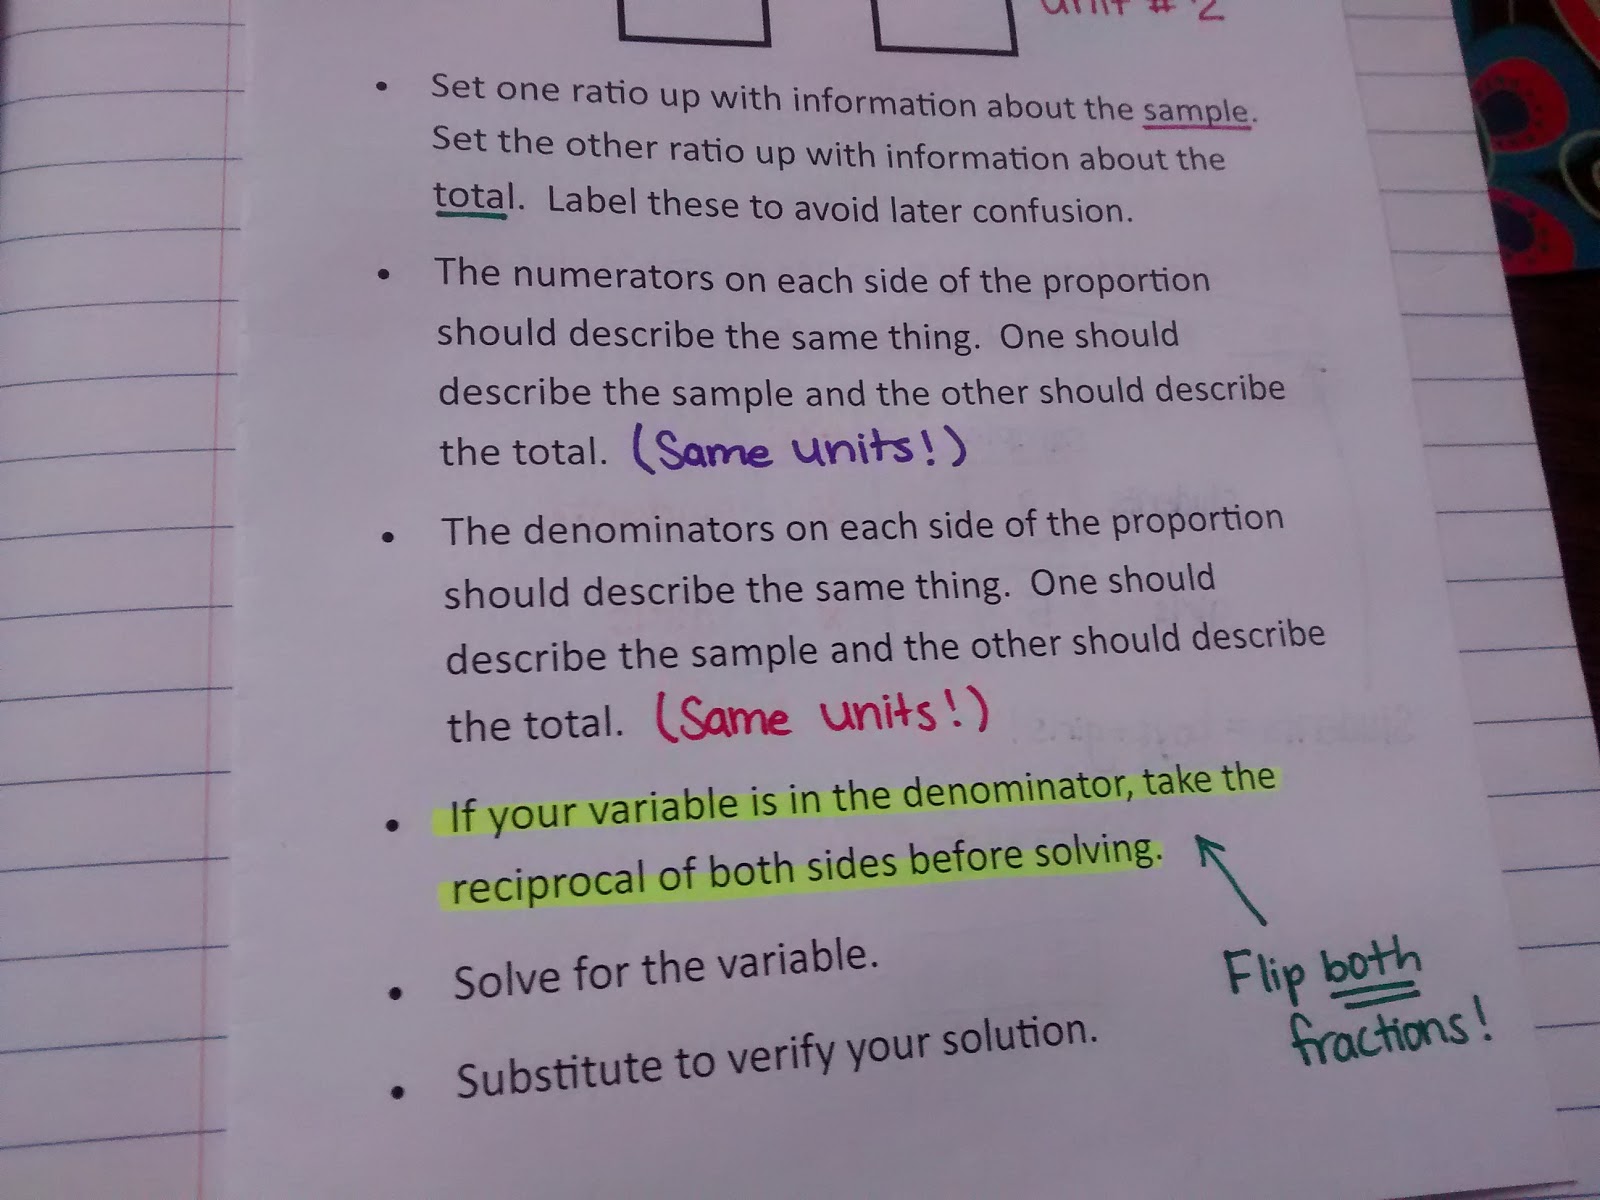 unit # 2
Set one ratio up with information about the sample.
Set the other ratio up with information about the
total. Label these to avoid later confusion.
The numerators on each side of the proportion
should describe the same thing. One should
describe the sample and the other should describe
the total. (Same units!)
The denominators on each side of the proportion
should describe the same thing. One should
describe the sample and the other should describe
the total. (Same units!)
If your variable is in the denominator, take the
reciprocal of both sides before solving.
Flip both
fractions!
Solve for the variable.
Substitute to verify your solution.